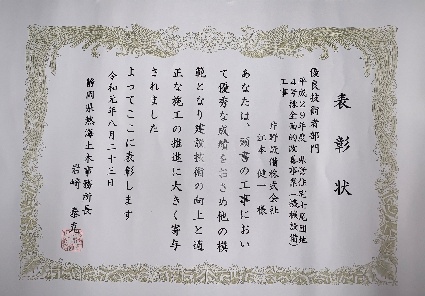 表彰状
優良技術者部門
平成29年度 県営住宅七尾団地
4号棟全面的改善事業(機械設備)
工事
片野設備株式会社
江本 健一 様
あなたは、頭書の工事におい
て優秀な成績をおさめ他の模
範となり建設技術の向上と適
正な施工の推進に大きく寄与
されました
よってここに表彰します
令和元年八月二十三日
静岡県熱海土木事務所長
岩﨑 泰